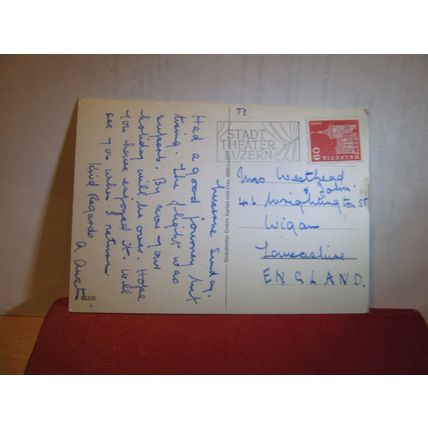 Lucerne Sunday.
Had a good journey but
tiring. The flight was
superb. By now your
holiday will be over. Hope
you have enjoyed it. Will
see you when I return.
Kind Regards
73.
STADT
THEATER
LUZERN
HELVETIA
60
Mrs Westhead
& John.
46 Wrightington St
Wigan
Lancashire
ENGLAND.